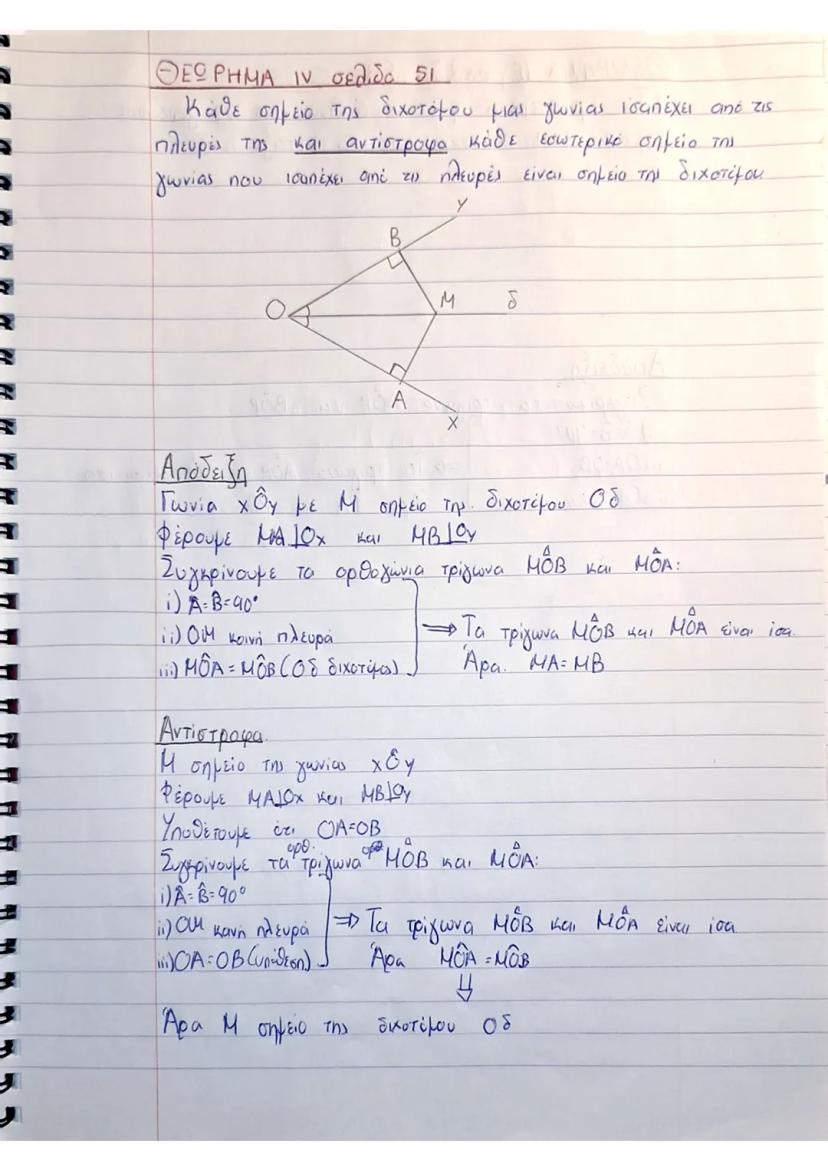 ΘΕΩΡΗΜΑ IV σελίδα 51
Κάθε σημείο της διχοτόμου μιας γωνίας ισαπέχει από τις
πλευρές της και αντίστροφα κάθε εσωτερικό σημείο της
γωνίας που ισαπέχει από τις πλευρές είναι σημείο της διχοτόμου
y
B
O
M
δ
A
x
Απόδειξη
Γωνία xÔy με M σημείο της διχοτόμου Οδ
Φέρουμε MA⊥Ox και MB⊥Oy
Συγκρίνουμε τα ορθογώνια τρίγωνα MÔB και MÔA:
i) Â=B̂=90°
ii) OM κοινή πλευρά
iii) MÔA = MÔB (Οδ διχοτόμος)
⇒ Τα τρίγωνα MÔB και MÔA είναι ίσα.
Άρα. MA=MB
Αντίστροφα
M σημείο της γωνίας xÔy
Φέρουμε MA⊥Ox και MB⊥Oy
Υποθέτουμε ότι OA=OB
Συγκρίνουμε τα ορθ. τρίγωνα MÔB και MÔA:
i) Â=B̂=90°
ii) OM κοινή πλευρά
iii) OA=OB (υπόθεση)
⇒ Τα τρίγωνα MÔB και MÔA είναι ίσα
Άρα MÔA = MÔB
⇓
Άρα M σημείο της διχοτόμου Οδ